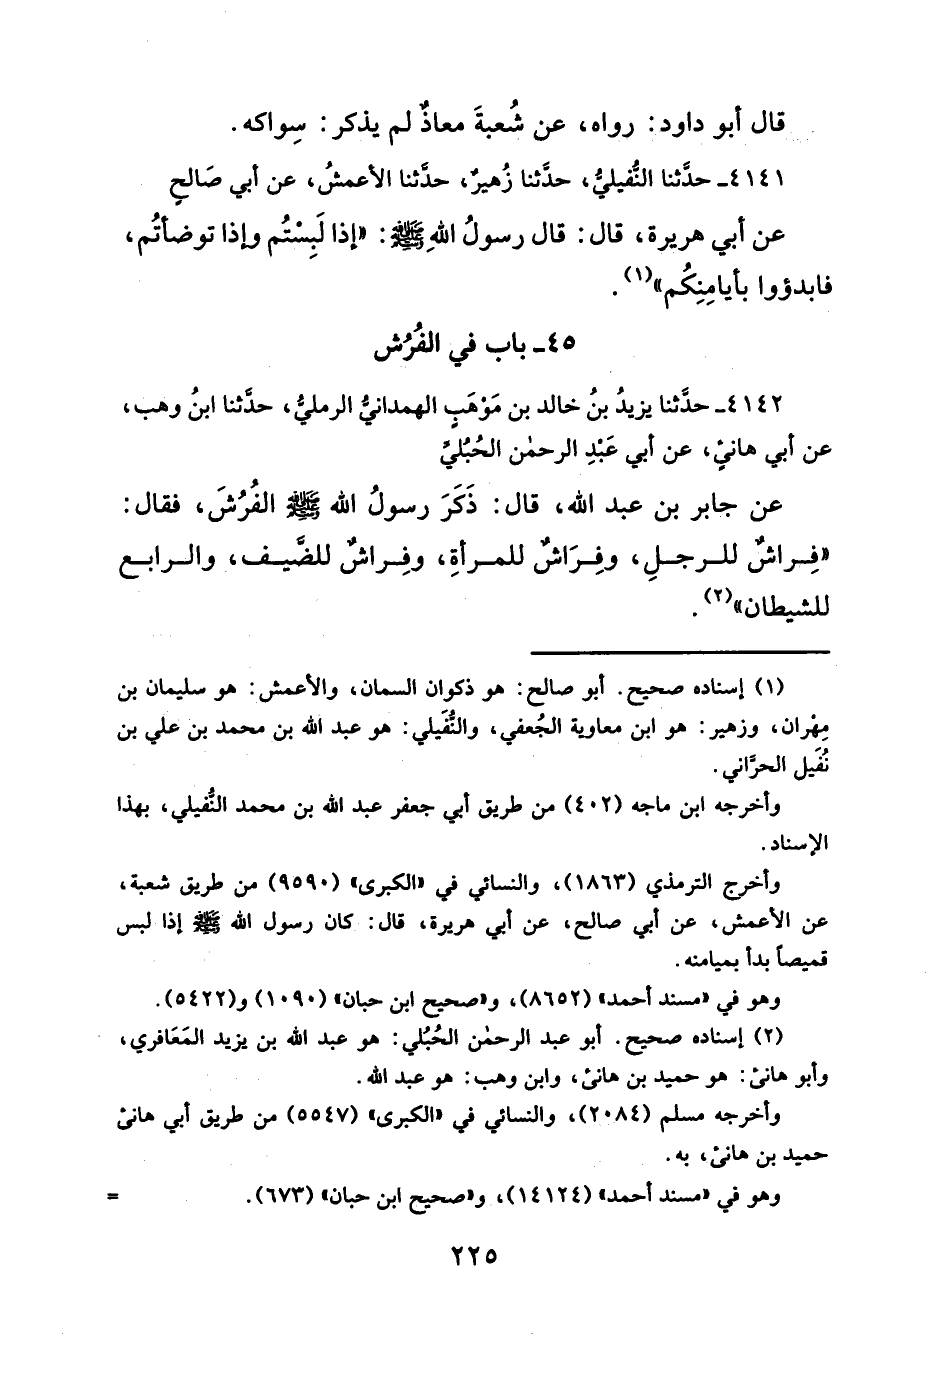 قال أبو داود: رواه، عن شُعبةَ معاذٌ لم يذكر: سِواكه.
٤١٤١ـ حدَّثنا النُّفيليُّ، حدَّثنا زُهيرٌ، حدَّثنا الأعمشُ، عن أبي صَالحٍ
عن أبي هريرة، قال: قال رسولُ اللهِ ﷺ: «إذا لَبِسْتُم وإذا توضأتُم،
فابدؤوا بأيامِنِكُم»(١).
٤٥ـ باب في الفُرُش
٤١٤٢ـ حدَّثنا يزيدُ بنُ خالد بن مَوْهَبٍ الهمدانيُّ الرمليُّ، حدَّثنا ابنُ وهب،
عن أبي هانئٍ، عن أبي عَبْدِ الرحمٰن الحُبُليِّ
عن جابر بن عبد الله، قال: ذَكَرَ رسولُ الله ﷺ الفُرُشَ، فقال:
«فِراشٌ للرجلِ، وفِرَاشٌ للمرأةِ، وفِراشٌ للضَّيف، والرابع
للشيطان»(٢).
(١) إسناده صحيح. أبو صالح: هو ذكوان السمان، والأعمش: هو سليمان بن
مِهْران، وزهير: هو ابن معاوية الجُعفي، والنُّفَيلي: هو عبد الله بن محمد بن علي بن
نُفَيل الحرَّاني.
وأخرجه ابن ماجه (٤٠٢) من طريق أبي جعفر عبد الله بن محمد النُّفيلي، بهذا
الإسناد.
وأخرج الترمذي (١٨٦٣)، والنسائي في «الكبرى» (٩٥٩٠) من طريق شعبة،
عن الأعمش، عن أبي صالح، عن أبي هريرة، قال: كان رسول الله ﷺ إذا لبس
قميصاً بدأ بميامنه.
وهو في «مسند أحمد» (٨٦٥٢)، و«صحيح ابن حبان» (١٠٩٠) و(٥٤٢٢).
(٢) إسناده صحيح. أبو عبد الرحمٰن الحُبُلي: هو عبد الله بن يزيد المَعَافري،
وأبو هانئ: هو حميد بن هانئ، وابن وهب: هو عبد الله.
وأخرجه مسلم (٢٠٨٤)، والنسائي في «الكبرى» (٥٥٤٧) من طريق أبي هانئ
حميد بن هانئ، به.
وهو في «مسند أحمد» (١٤١٢٤)، و«صحيح ابن حبان» (٦٧٣). =
٢٢٥